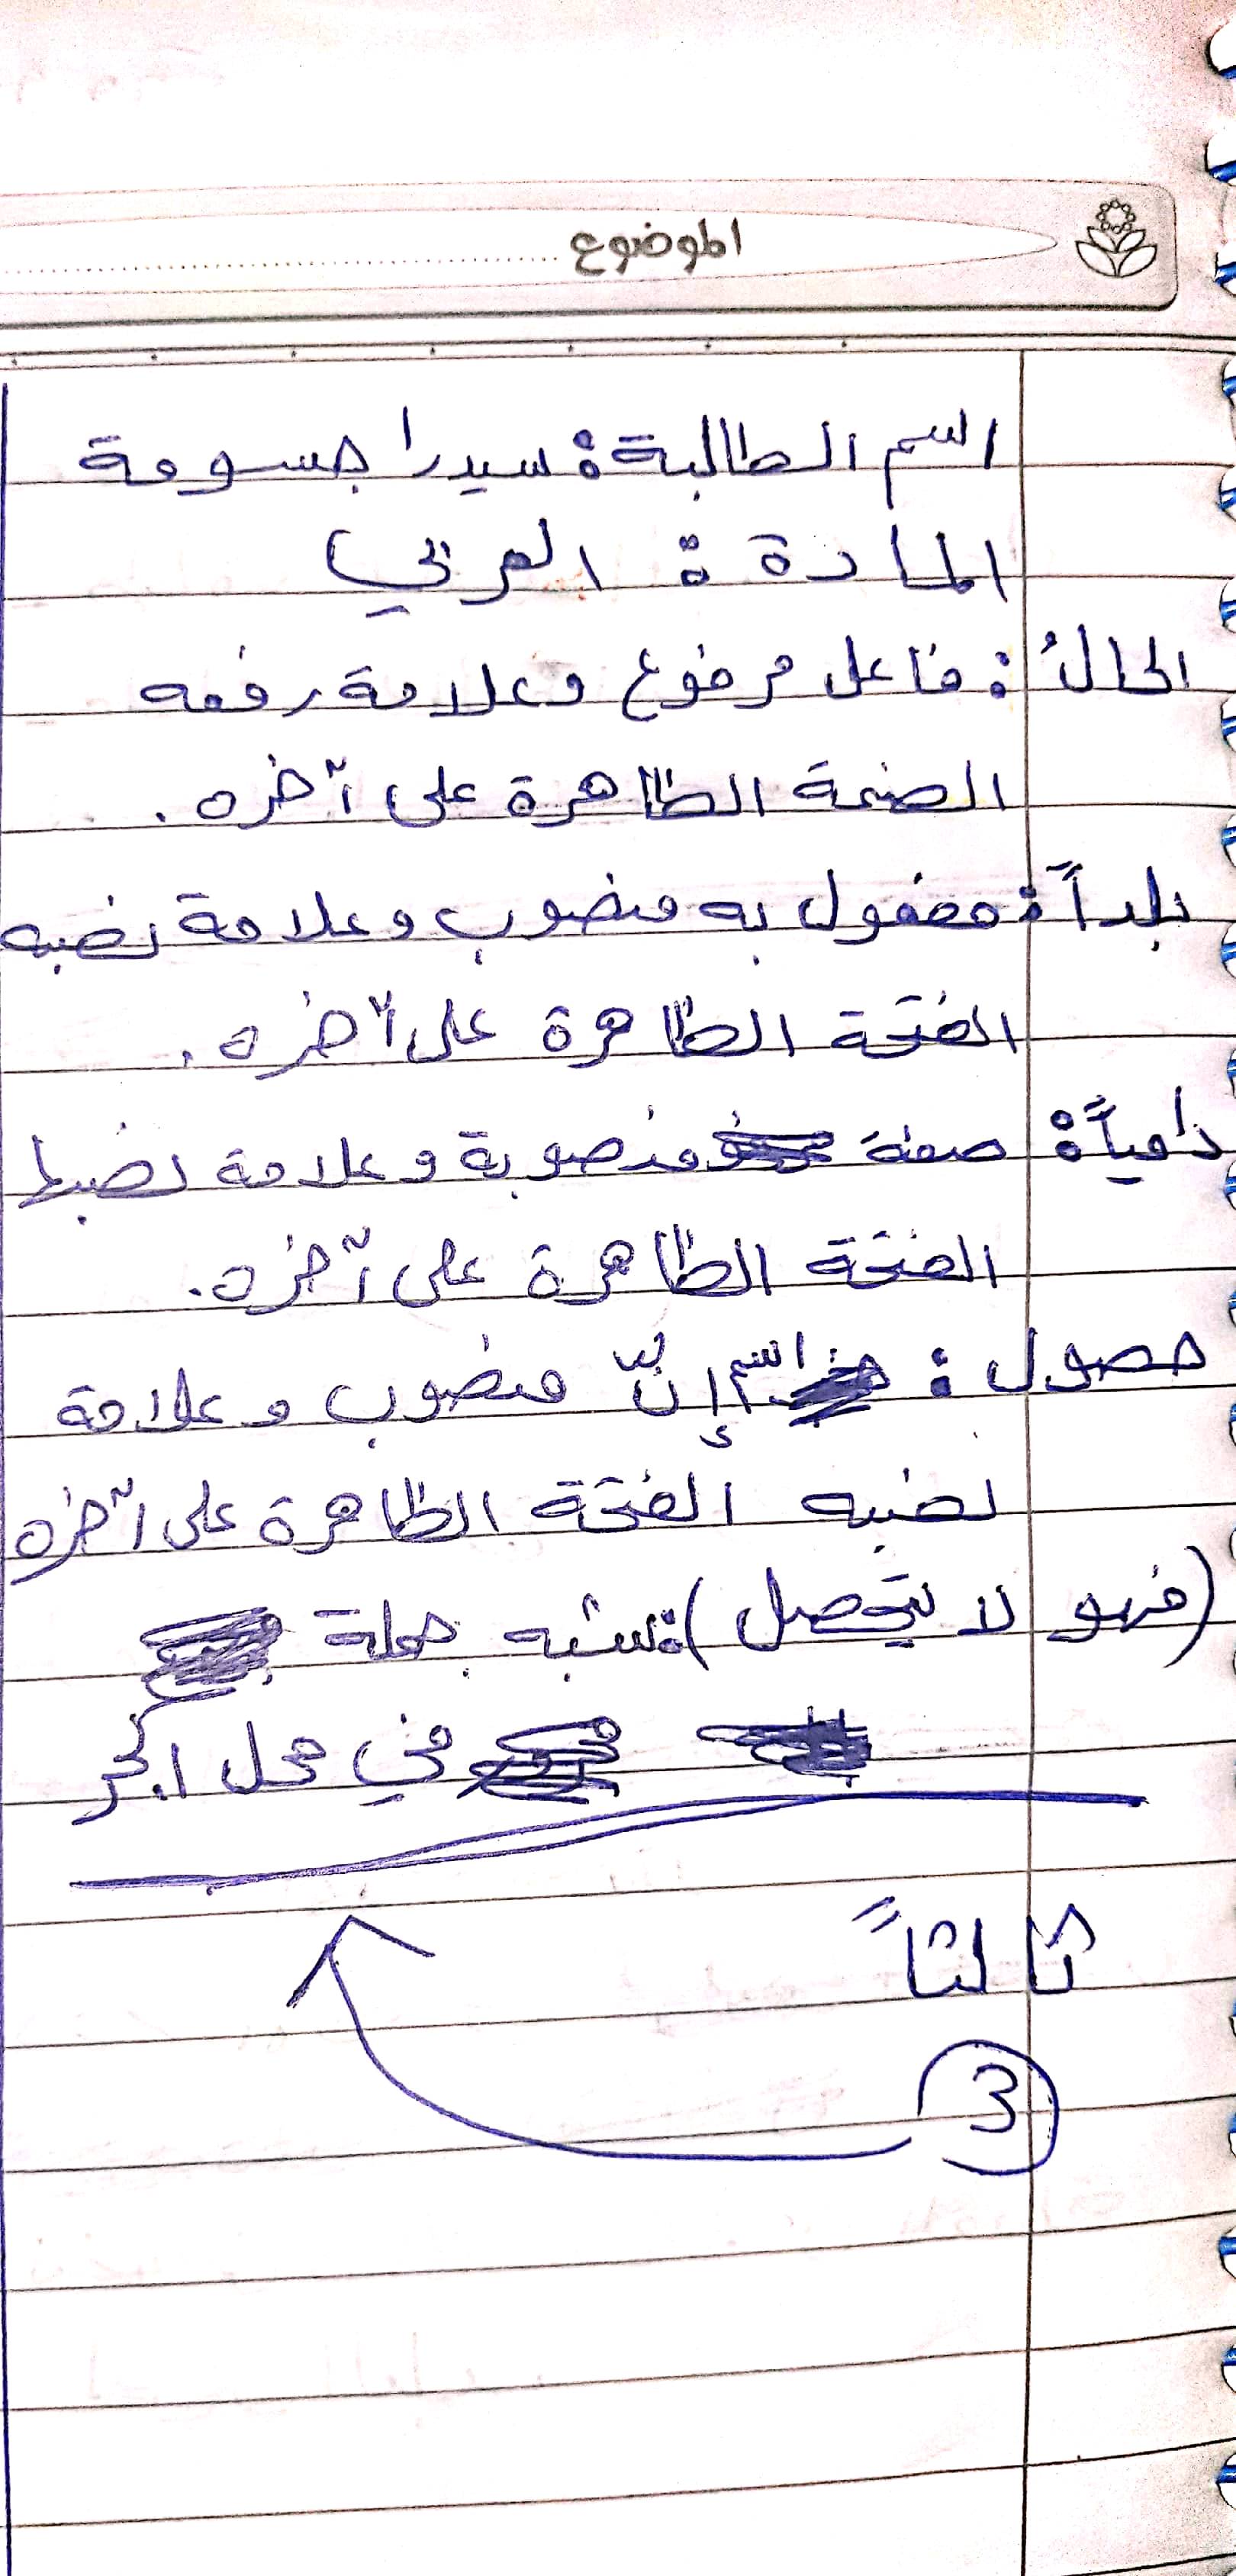 الموضوع
اسم الطالبة: سيدرا جسومة
المادة: العربي
الحالُ: فاعل مرفوع وعلامة رفعه
الضمة الظاهرة على آخره.
بلداً: مفعول به منصوب وعلامة نصبه
الفتحة الظاهرة على آخره.
دامياً: صفة منصوبة وعلامة نصبها
الفتحة الظاهرة على آخره.
حصول: اسم إنّ منصوب وعلامة
نصبه الفتحة الظاهرة على آخره
(فهو لا يتحصل): شبه جملة
في محل الجر
ثالثاً
3